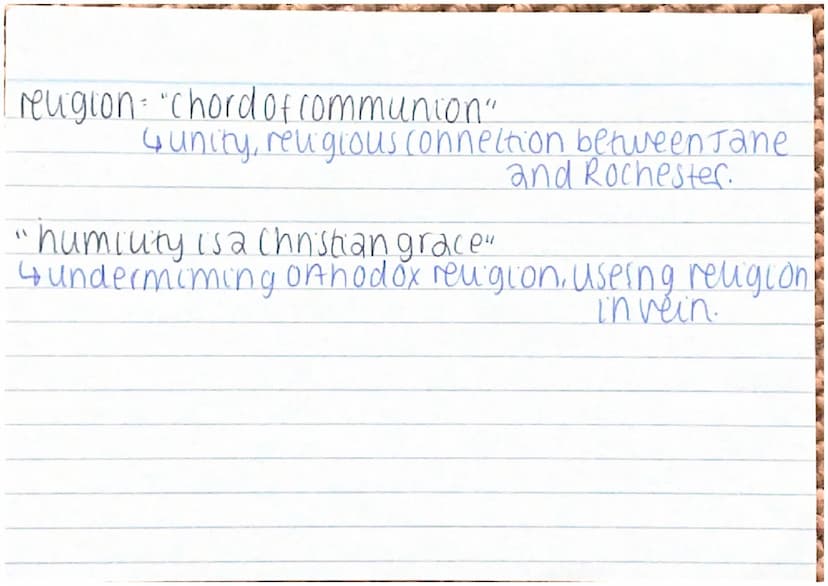 religion = "chord of communion"
↳ unity, religious connection between Jane
and Rochester.
"humility is a Christian grace"
↳ undermiming orthodox religion, useing religion
in vein.